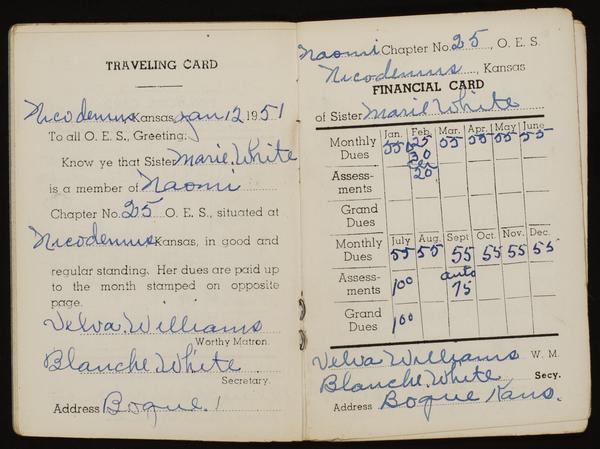 TRAVELING CARD
Nicodemus Kansas, Jan 12 1951
To all O. E. S., Greeting:
Know ye that Sister Marie White
is a member of Naomi
Chapter No. 25 O. E. S., situated at
Nicodemus Kansas, in good and
regular standing. Her dues are paid up
to the month stamped on opposite
page.
Velva Williams
Worthy Matron.
Blanche White
Secretary.
Address Bogue
Naomi Chapter No. 25, O. E. S.
Nicodemus, Kansas
FINANCIAL CARD
of Sister Marie White
Jan. Feb. Mar. Apr. May June
Monthly Dues 55 25 55 55 55 55
30
Assess-ments 20
Grand Dues
July Aug. Sept Oct. Nov. Dec.
Monthly Dues 55 55 55 55 55 55
Assess-ments 100 auto 75
Grand Dues 100
Velva Williams W. M.
Blanche White Secy.
Address Bogue Kans.